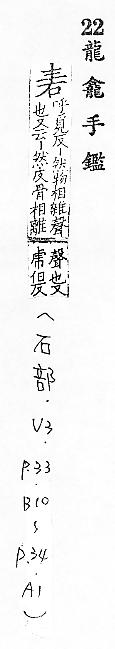 22龍龕手鑑
呼覓反〡然物相離聲
也又云〡然皮骨相離
聲也又
虎但反
(石部.V3.P.33.B10~P.34.A1)